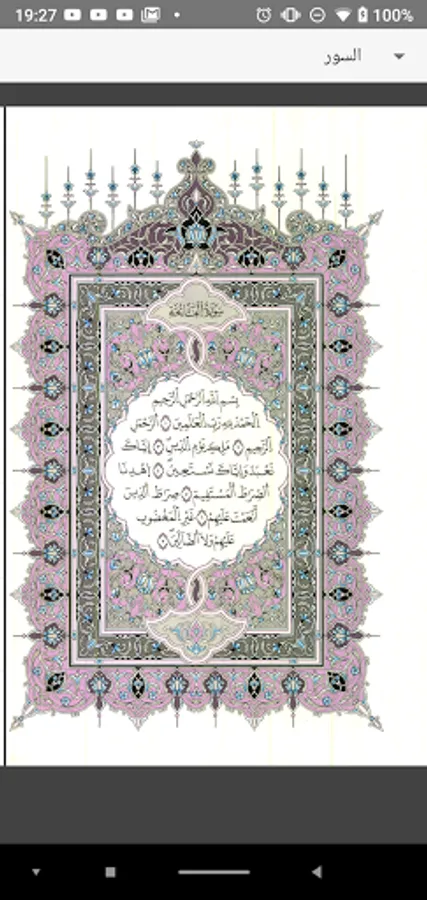 19:27
100%
السور
سورة الفاتحة
بسم الله الرحمن الرحيم
الحمد لله رب العلمين الرحمن
الرحيم ملك يوم الدين إياك
نعبد وإياك نستعين اهدنا
الصرط المستقيم صرط الذين
أنعمت عليهم غير المغضوب
عليهم ولا الضالين